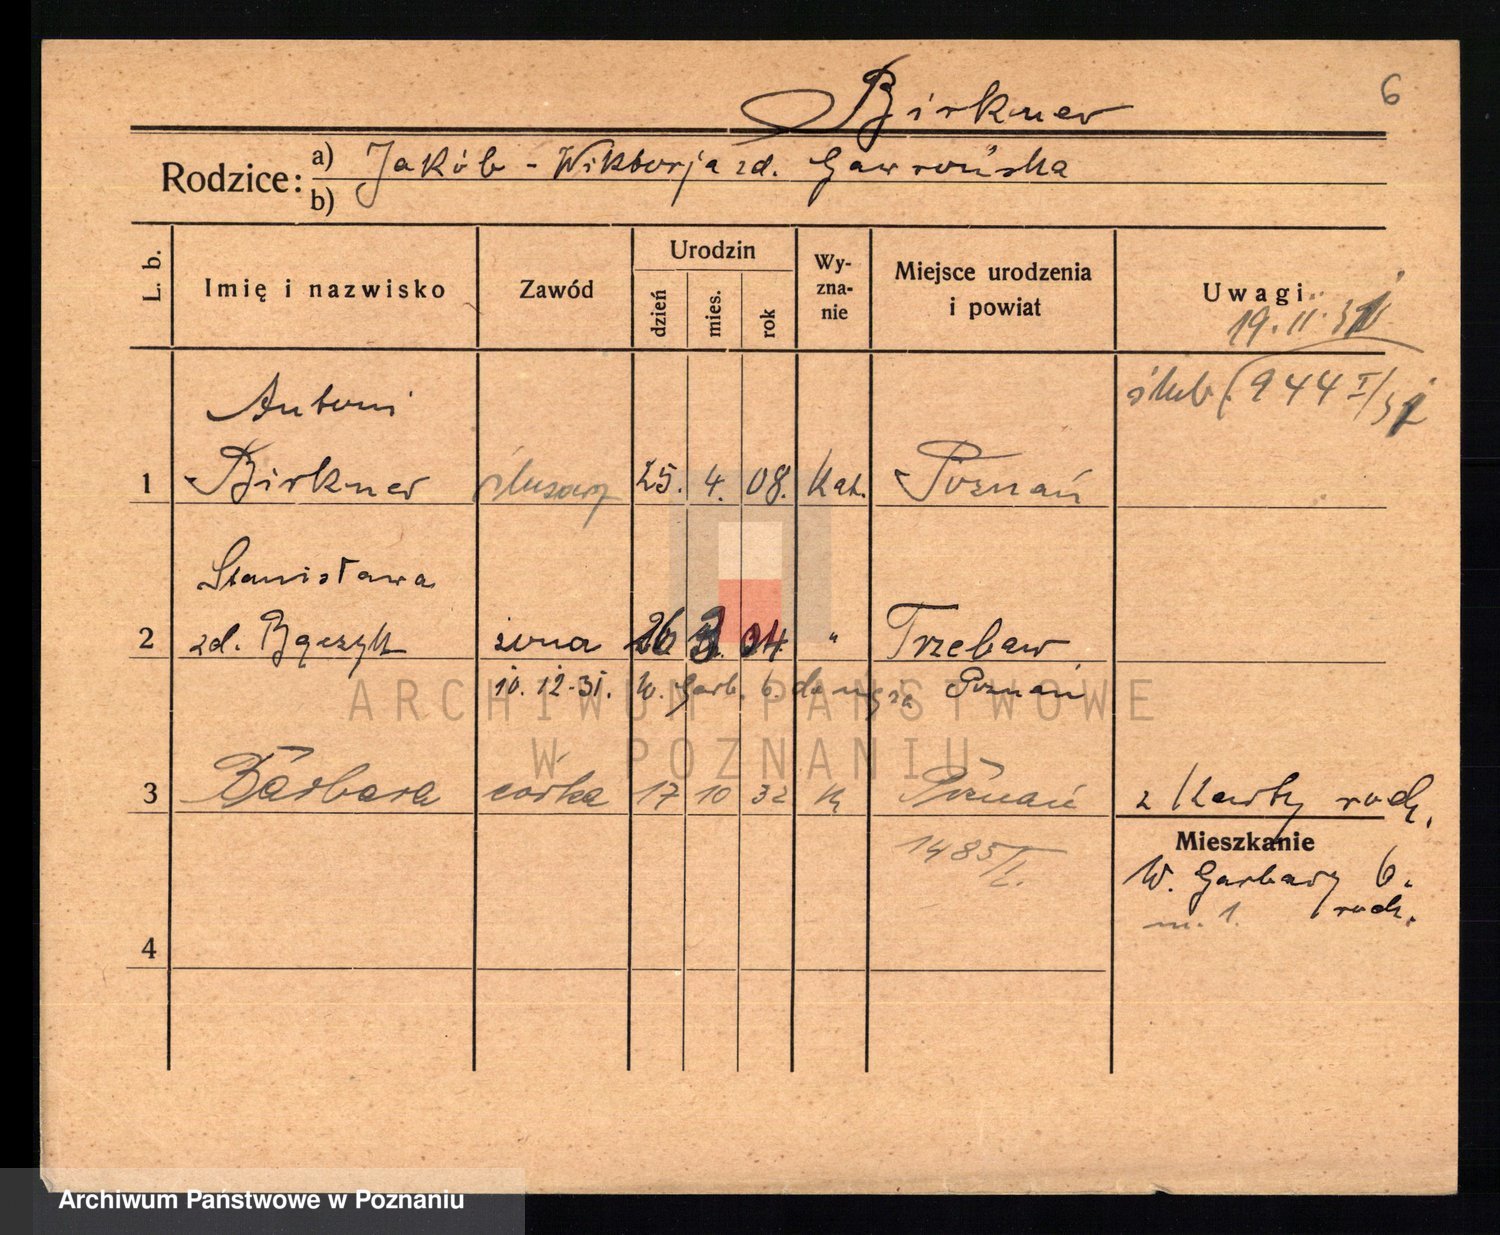 Birkner
6
Rodzice: a) Jakób - Wiktorja zd. Gawrońska
b)
L. b.
Imię i nazwisko
Zawód
Urodzin
dzień
mies.
rok
Wy-
zna-
nie
Miejsce urodzenia
i powiat
Uwagi
19. II. 31
ślub (944 I/31
Antoni
1 Birkner ślusarz 25. 4. 08. Kat. Poznań
Stanisława
2 zd. Bączyk żona 26 3. 04. " Trzebaw
10. 12. 31. W. Garb. 6. do męża Poznań
3 Barbara córka 17 10 32 K Poznań z Karty rodz.
1485/I.
Mieszkanie
W. Garbary 6.
m. 1. rodz.
4
ARCHIWUM PAŃSTWOWE
W POZNANIU
Archiwum Państwowe w Poznaniu